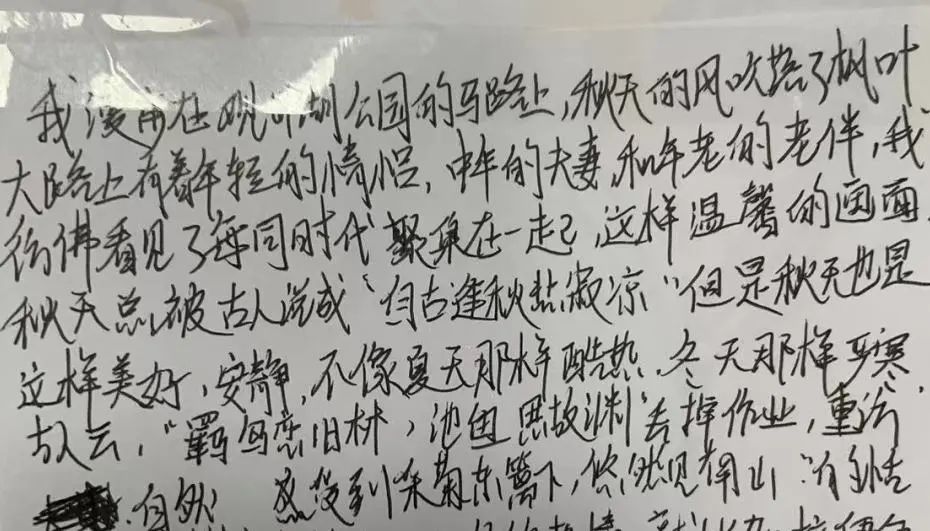 我漫步在观湖公园的马路上,秋天的风吹落了枫叶
大路上有着年轻的情侣,中年的夫妻,和年老的老伴,我
彷佛看见了每同时代聚集在一起,这样温馨的画面,
秋天总被古人说成“自古逢秋悲寂凉”但是秋天也是
这样美好,安静,不像夏天那样酷热,冬天那样严寒,
古人云,“羁鸟恋旧林,池鱼思故渊”丢掉作业,重返
自然 感受到采菊东篱下,悠然见南山